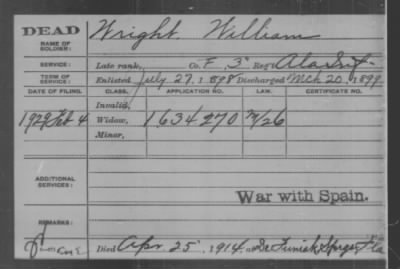 DEAD
NAME OF SOLDIER: Wright, William
SERVICE: Late rank, Co. F, 3" Reg't Ala Inf
TERM OF SERVICE: Enlisted July 27, 1898 Discharged Mch 20, 1899
DATE OF FILING. CLASS. APPLICATION NO. LAW. CERTIFICATE NO.
Invalid,
1929 Feb 4 Widow, 1634270 M/26
Minor,
ADDITIONAL SERVICES:
War with Spain.
REMARKS:
Died Apr. 25, 1914, at De Funiak Sprgs Fla